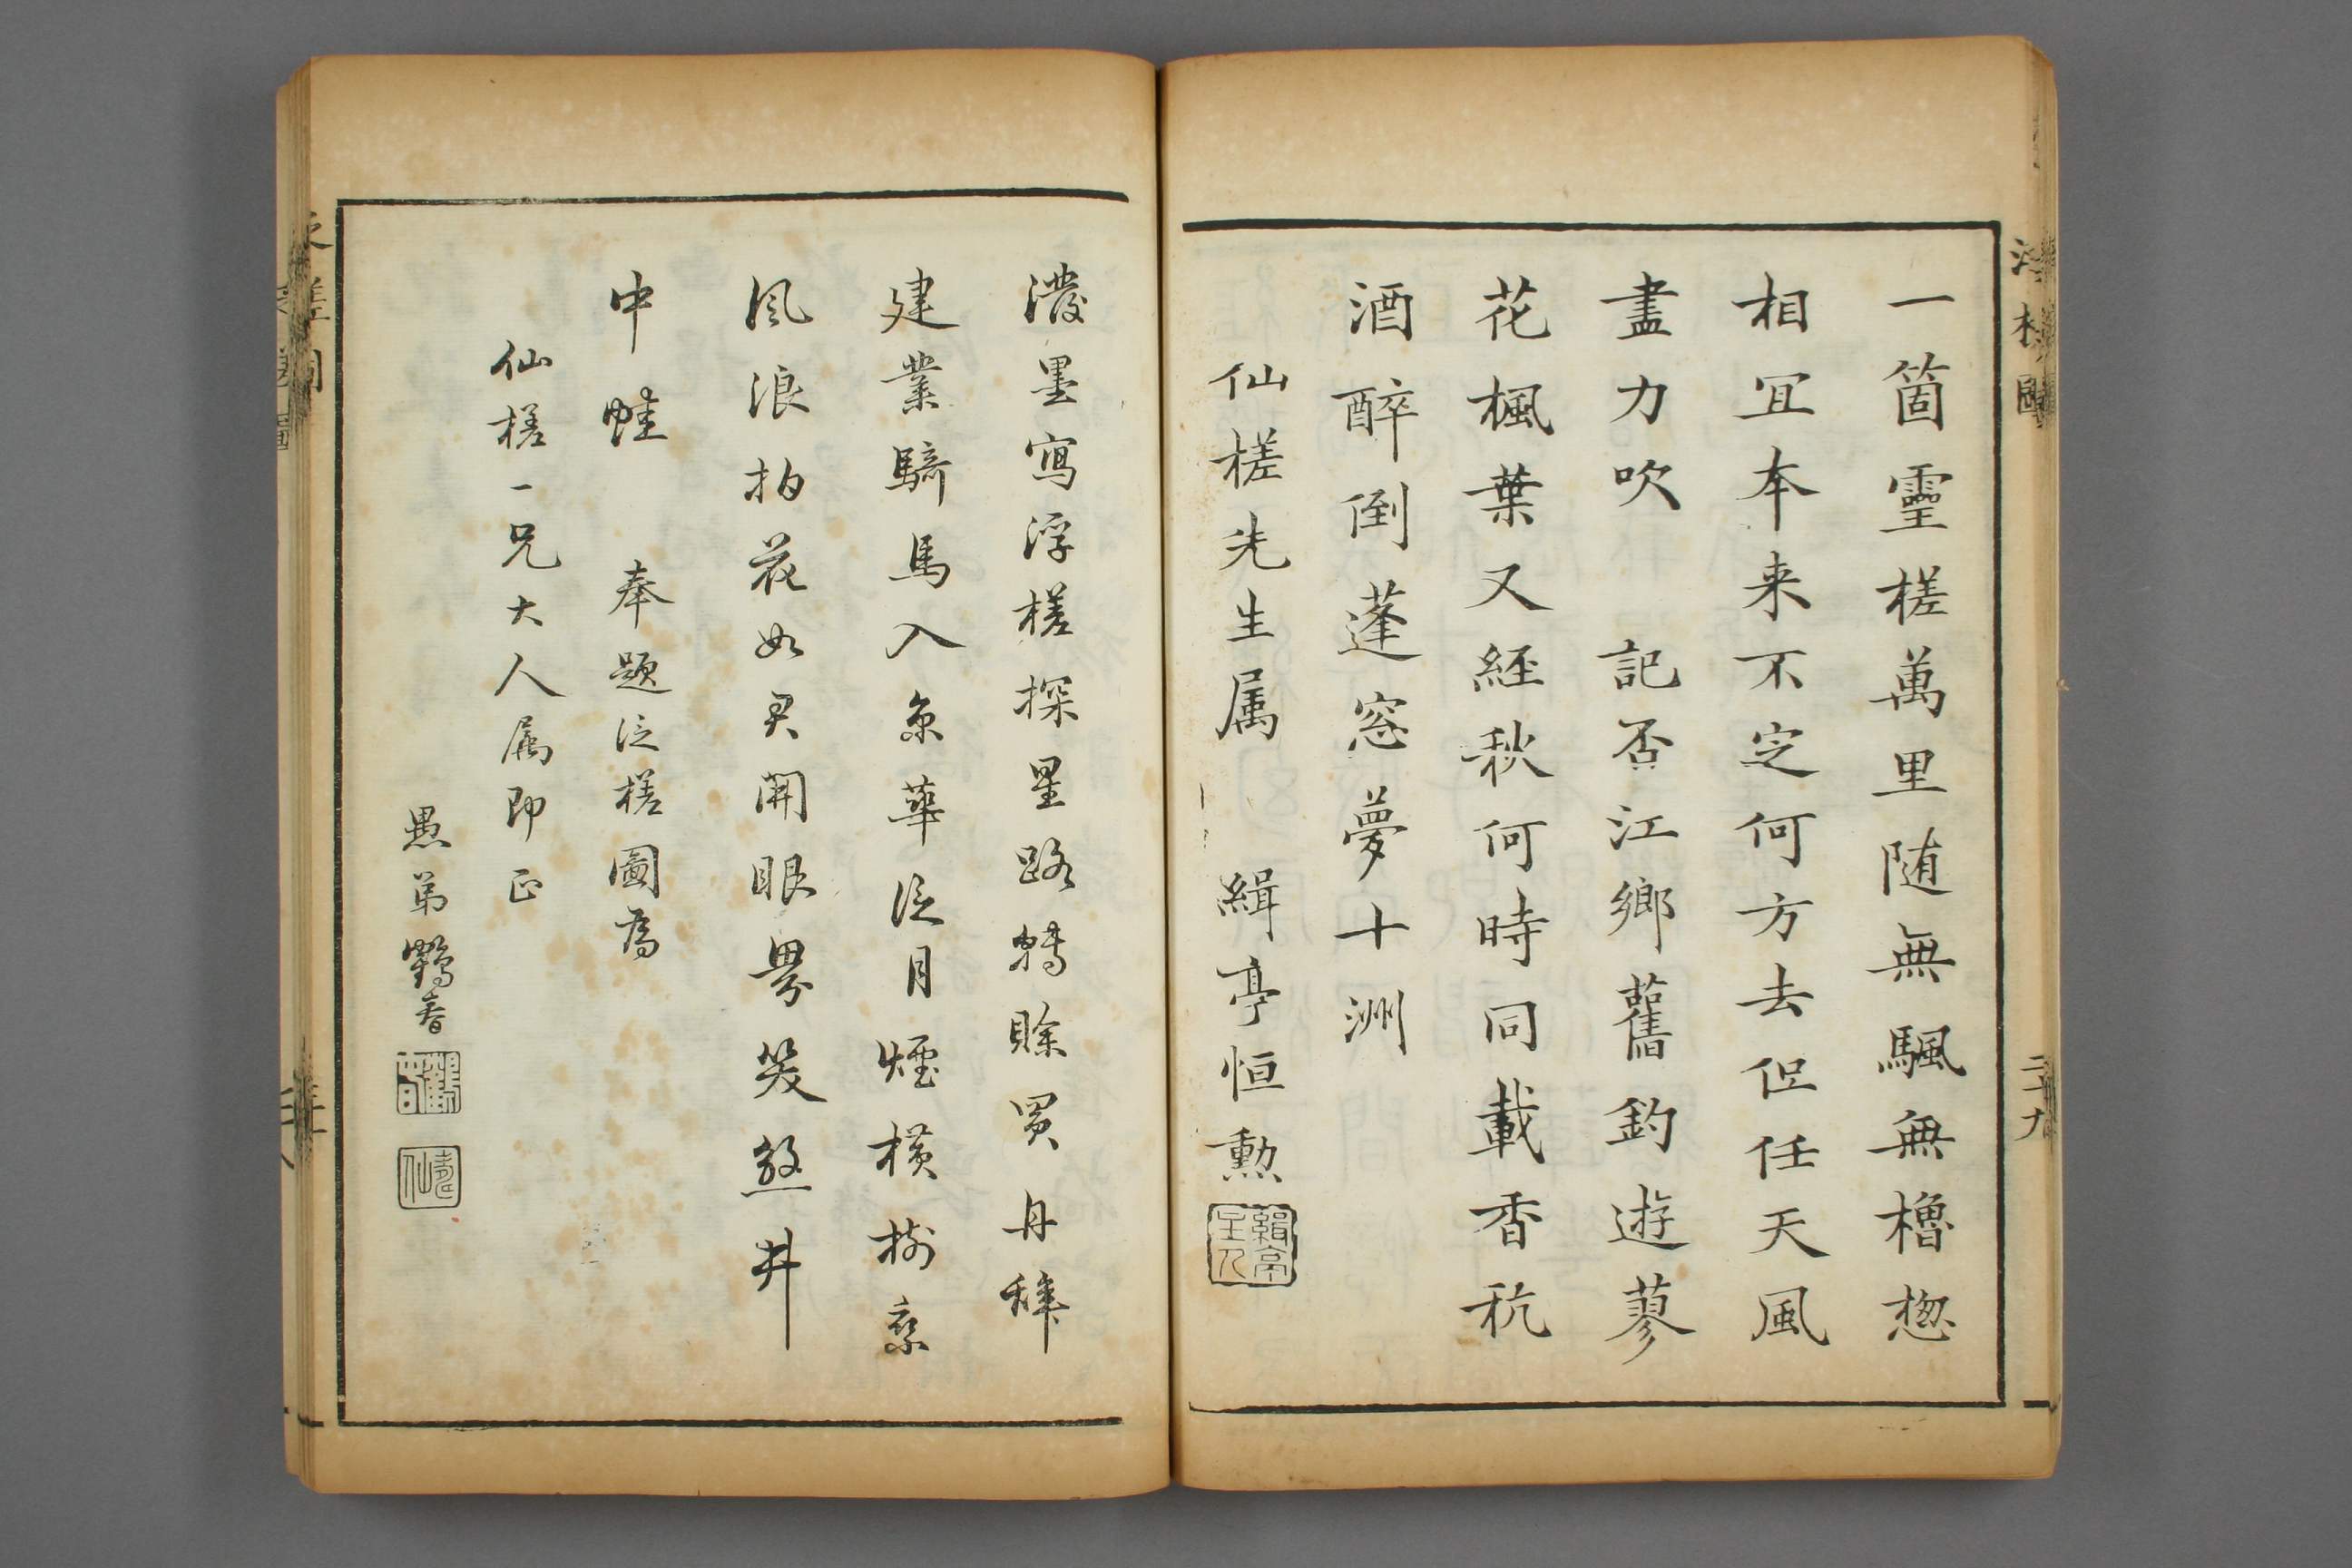 一箇靈槎萬里随無颿無櫓揔
相冝本来不定何方去但任天風
盡力吹　記否江鄉舊釣遊蓼
花楓葉又經秋何時同載香秔
酒醉倒蓬窓夢十洲
仙槎先生属　緝亭恒勲
二十九
濃墨寫浮槎探星路轉賒買舟辭
建業騎馬入京華泛月煙橫樹乘
風浪拍花如君開眼界笑煞井
中蛙　奉題泛槎圖為
仙槎一兄大人属即正
愚弟鸛音